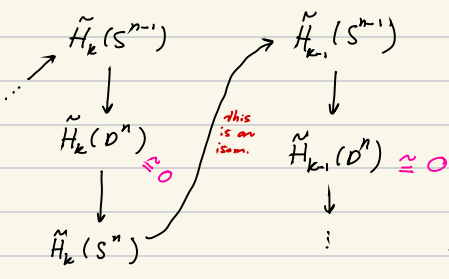 H̃ₖ(Sⁿ⁻¹)
H̃ₖ(Dⁿ) ≅ 0
H̃ₖ(Sⁿ)
this
is an
isom.
H̃ₖ₋₁(Sⁿ⁻¹)
H̃ₖ₋₁(Dⁿ) ≅ 0